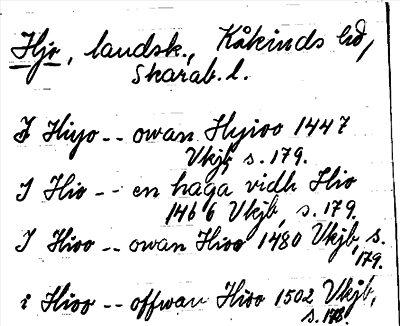 Hjo, landsk., Kåkinds hd,
Skarab. l.
I Hiyo -- owan Hyioo 1447
Vkjb, s. 179.
I Hio -- en haga vidh Hio
1466 Vkjb, s. 179.
I Hioo -- owan Hioo 1480 Vkjb, s.
179.
i Hioo -- offwan Hioo 1502 Vkjb,
s. 178